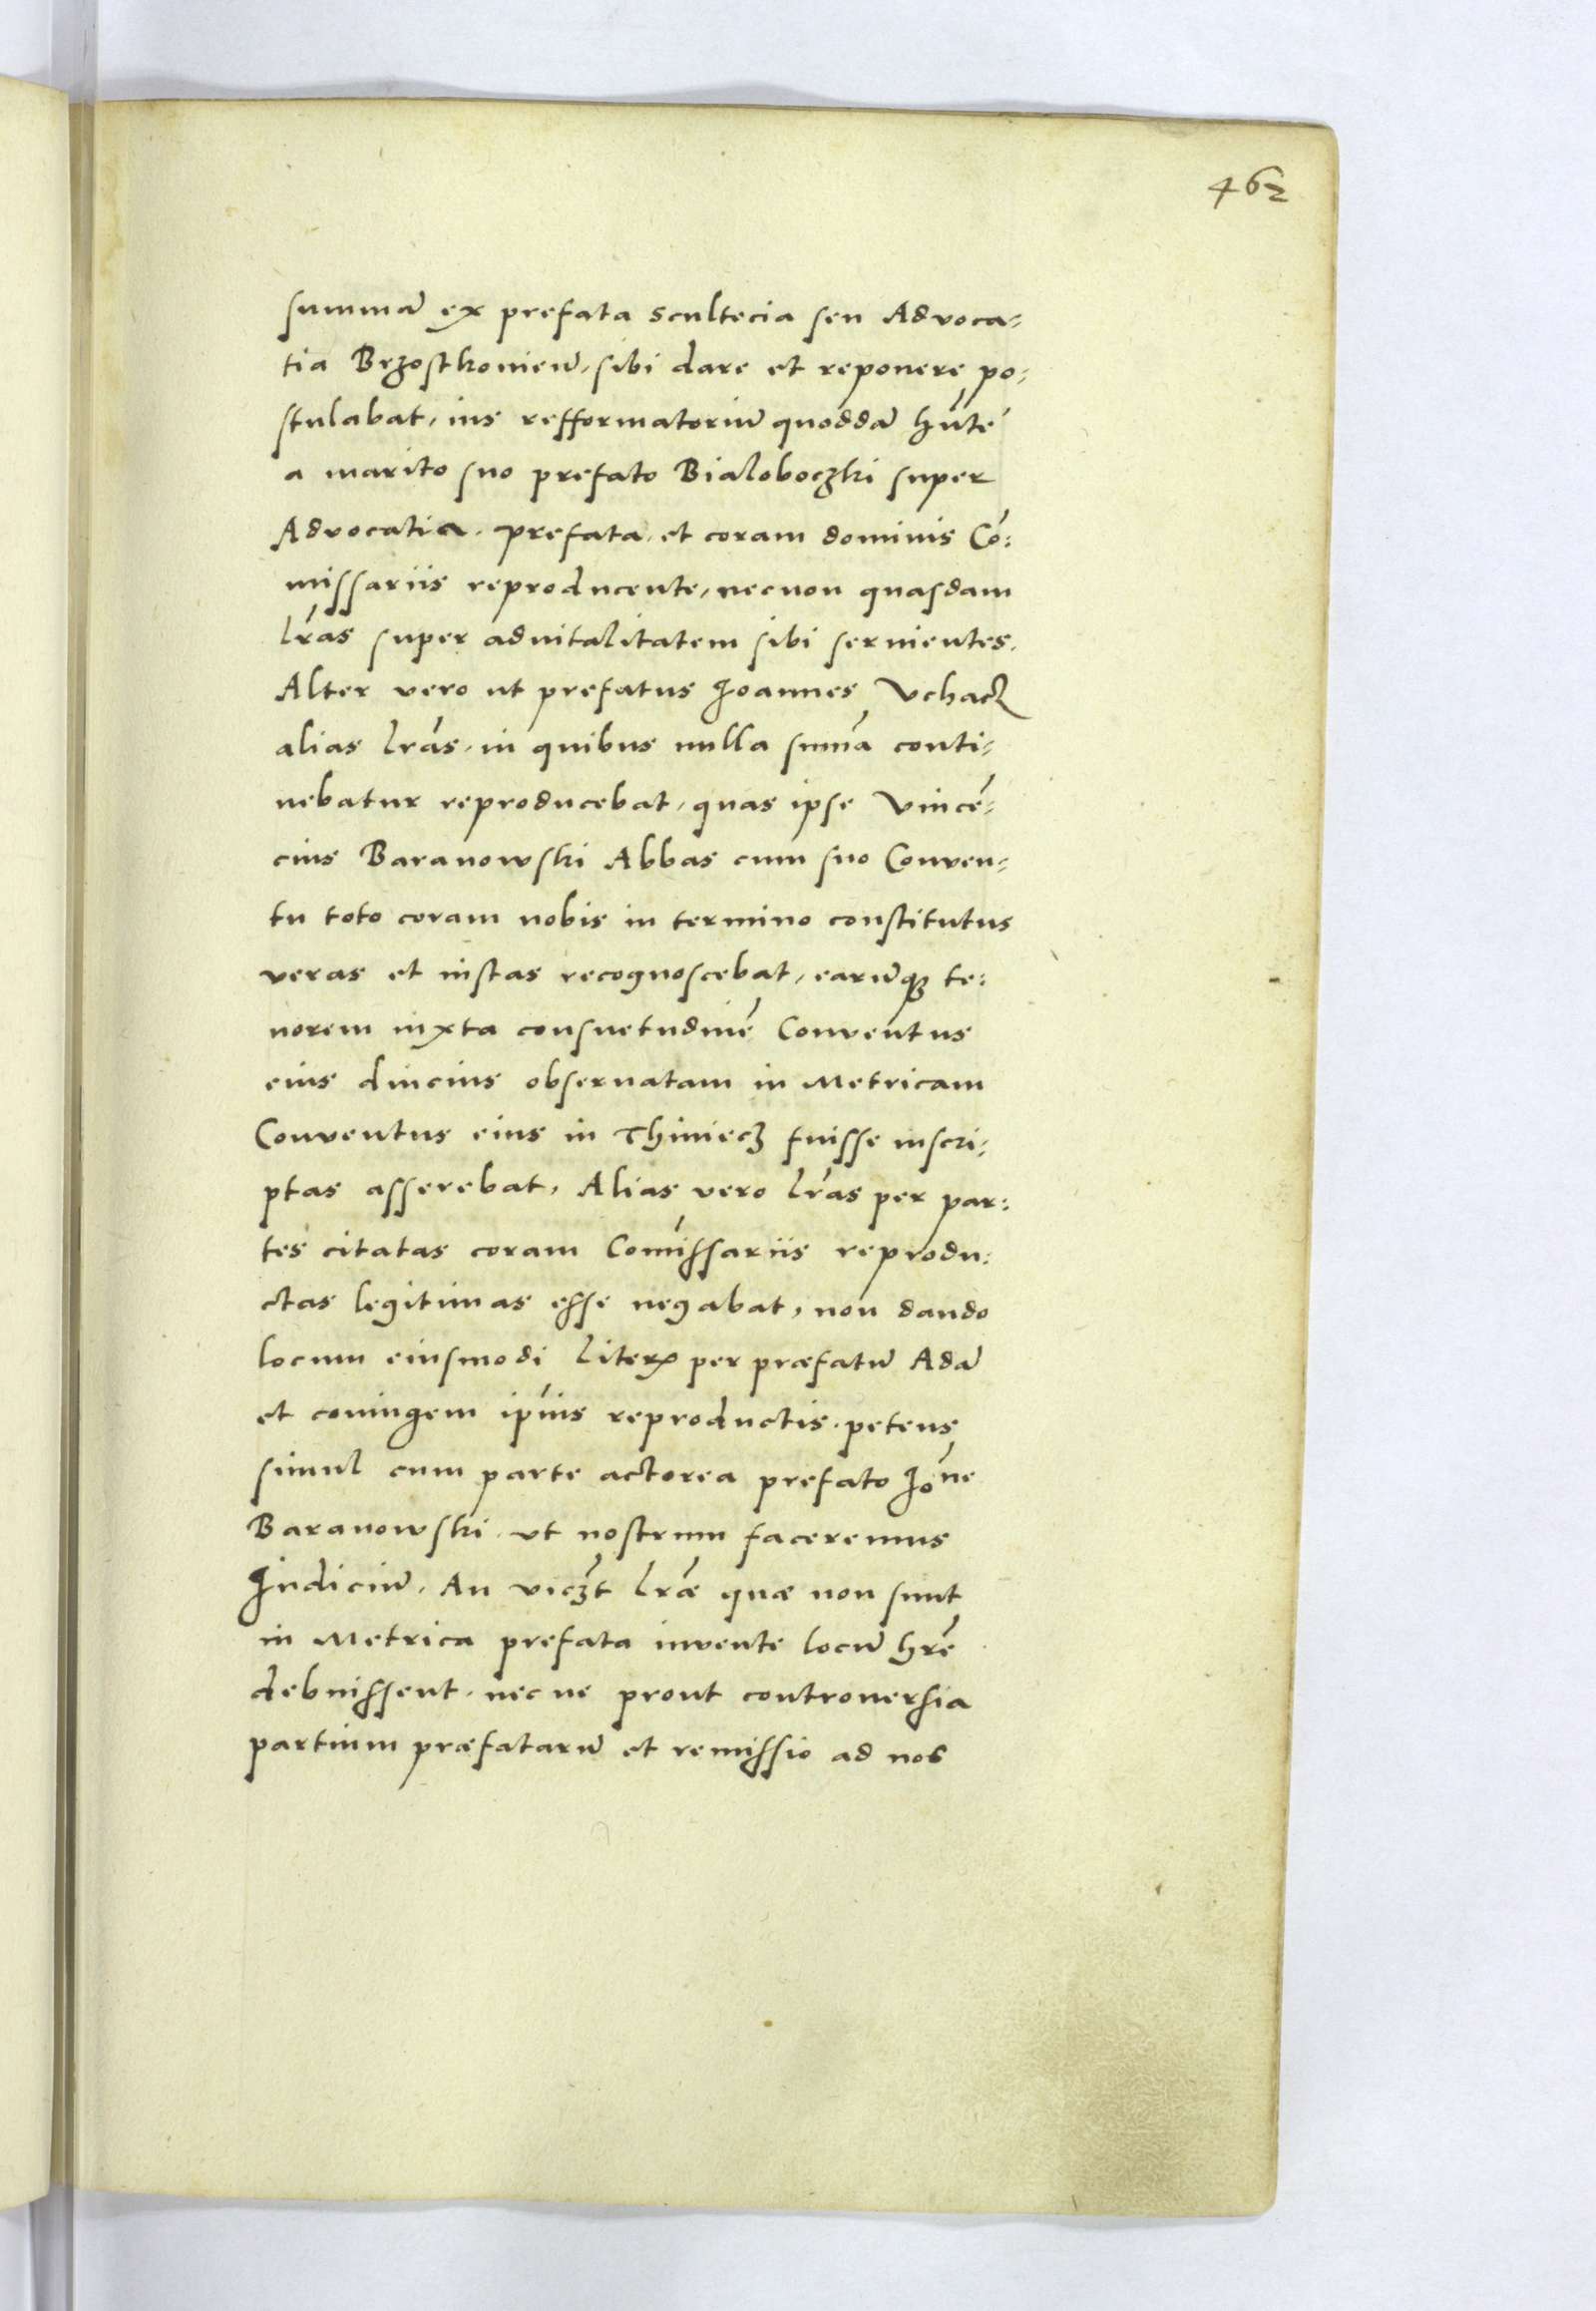 462
summā ex prefata scultecia seu Advoca-
tia Brzostkoviеn̄, sibi dare et reponere po-
stulabat, ius refformatoriū quoddā hn̄tē
a marito suo prefato Bialoboczki super
Advocatia prefata, et coram dominis Cō-
missariis reproducente, necnon quasdam
lr̄as super advitalitatem sibi servientes.
Alter vero ut prefatus Joannes Vchacz
alias lr̄as, in quibus nulla sum̄a conti-
nebatur reproducebat, quas ipse Vincē-
cius Baranowski Abbas cum suo Conven-
tu toto coram nobis in termino constitutus
veras et iustas recognoscebat, earūq₃ te-
norem iuxta consuetudinē Conventus
eius diucius observatam in Metricam
Conventus eius in Thiniecz fuisse inscri-
ptas asserebat, Alias vero lr̄as per par-
tes citatas coram Com̄issariis reprodu-
ctas legitimas esse negabat, non dando
locum eiusmodi literꝭ per præfatū Adā
et coniugem ip̄ius reproductis. petens
simul cum parte actorea prefato Jo͞ne
Baranowski ut nostrum faceremus
Judiciū, An vicz̄t lr̄æ quæ non sunt
in Metrica prefata invente locū hr̄e
debuissent, nec ne prout controversia
partium præfatarū et remissio ad nos